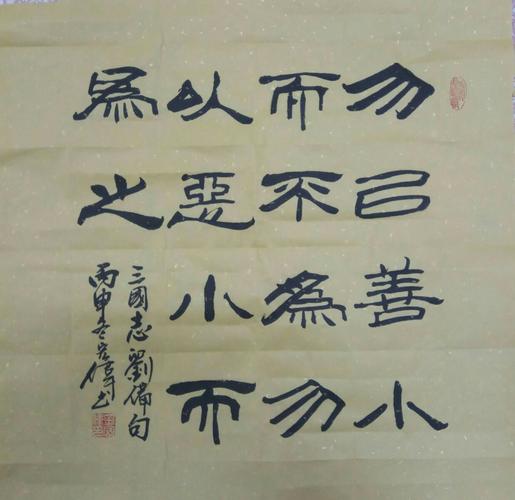 勿已善小
而不為勿
以惡小而
為之
三國志劉備句
丙申冬偉书